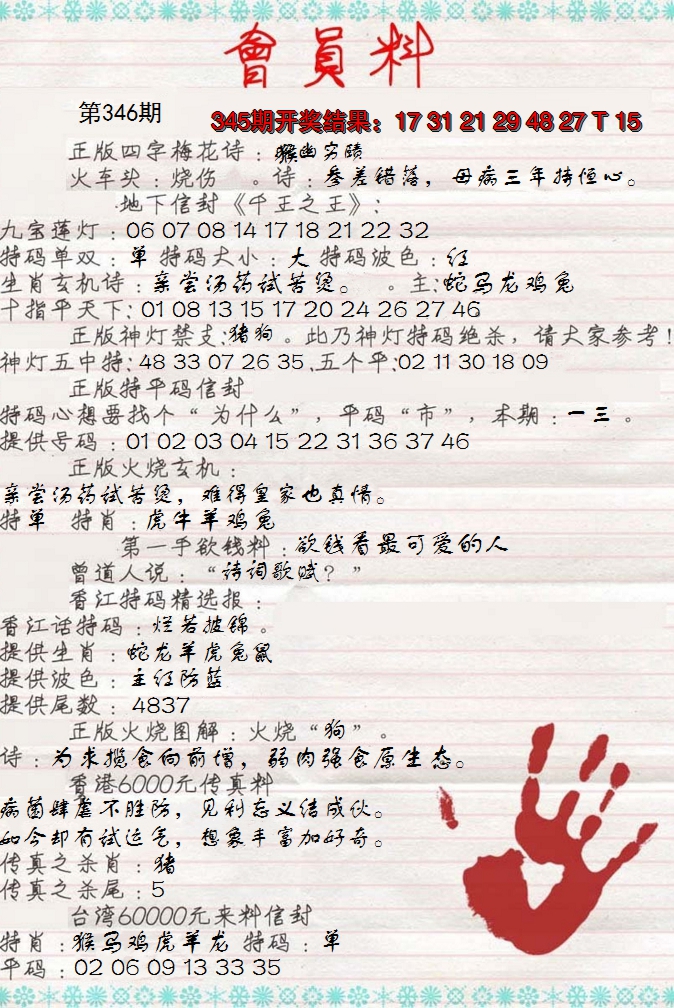 會員料
第346期
345期开奖结果：17 31 21 29 48 27 T 15
正版四字梅花诗：猴幽穷赜
火车头：烧伤 。诗：参差错落，母病三年持恒心。
地下信封《千王之王》：
九宝莲灯：06 07 08 14 17 18 21 22 32
特码单双：单 特码大小：大 特码波色：红
生肖玄机诗：亲尝汤药试苦烫。 。主：蛇马龙鸡兔
十指平天下：01 08 13 15 17 20 24 26 27 46
正版神灯禁支：猪狗 。此乃神灯特码绝杀，请大家参考！
神灯五中特：48 33 07 26 35 .五个平：02 11 30 18 09
正版特平码信封
特码心想要找个“为什么”，平码“市”，本期：一三 。
提供号码：01 02 03 04 15 22 31 36 37 46
正版火烧玄机：
亲尝汤药试苦烫，难得皇家也真情。
特单 特肖：虎牛羊鸡兔
第一手欲钱料：欲钱看最可爱的人
曾道人说：“诗词歌赋？”
香江特码精选报：
香江话特码：烂若披锦。
提供生肖：蛇龙羊虎兔鼠
提供波色：主红防蓝
提供尾数：4837
正版火烧图解：火烧“狗”。
诗：为求揽食向前增，弱肉强食原生态。
香港6000元传真料
病菌肆虐不胜防，见利忘义结成伙。
如今却有试运气，想象丰富加好奇。
传真之杀肖：猪
传真之杀尾：5
台湾60000元来料信封
特肖：猴马鸡虎羊龙 特码：单
平码：02 06 09 13 33 35